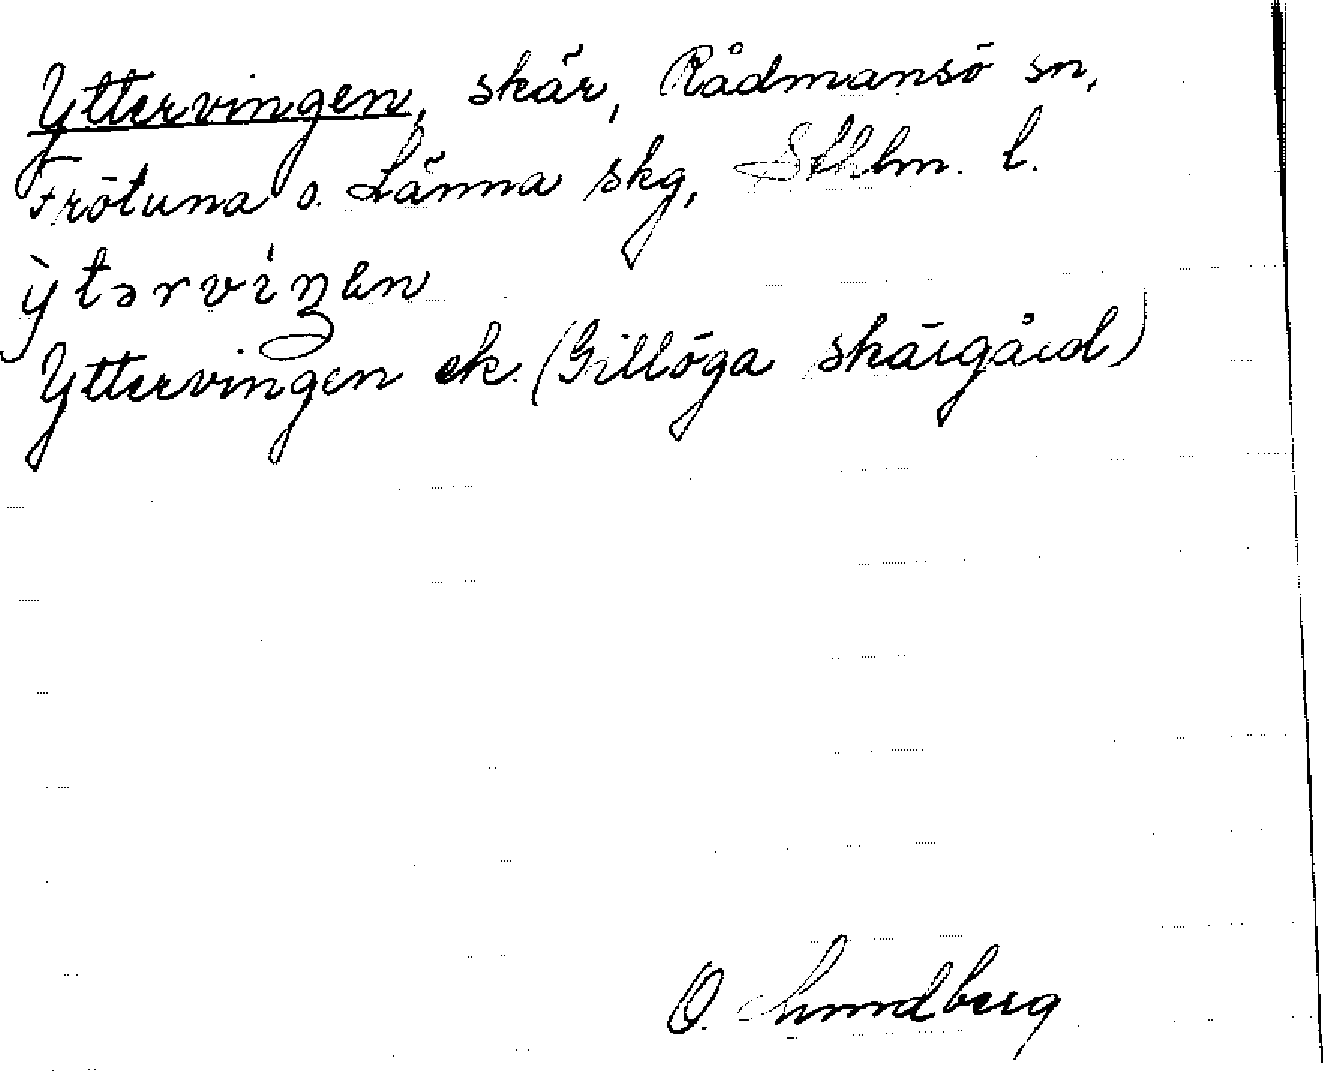 Yttervingen, skär, Rådmansö sn,
Frötuna o. Länna skg, Sthlm. l.
ỳtərvíŋen
Yttervingen ek. (Gillöga skärgård)
O. Lundberg